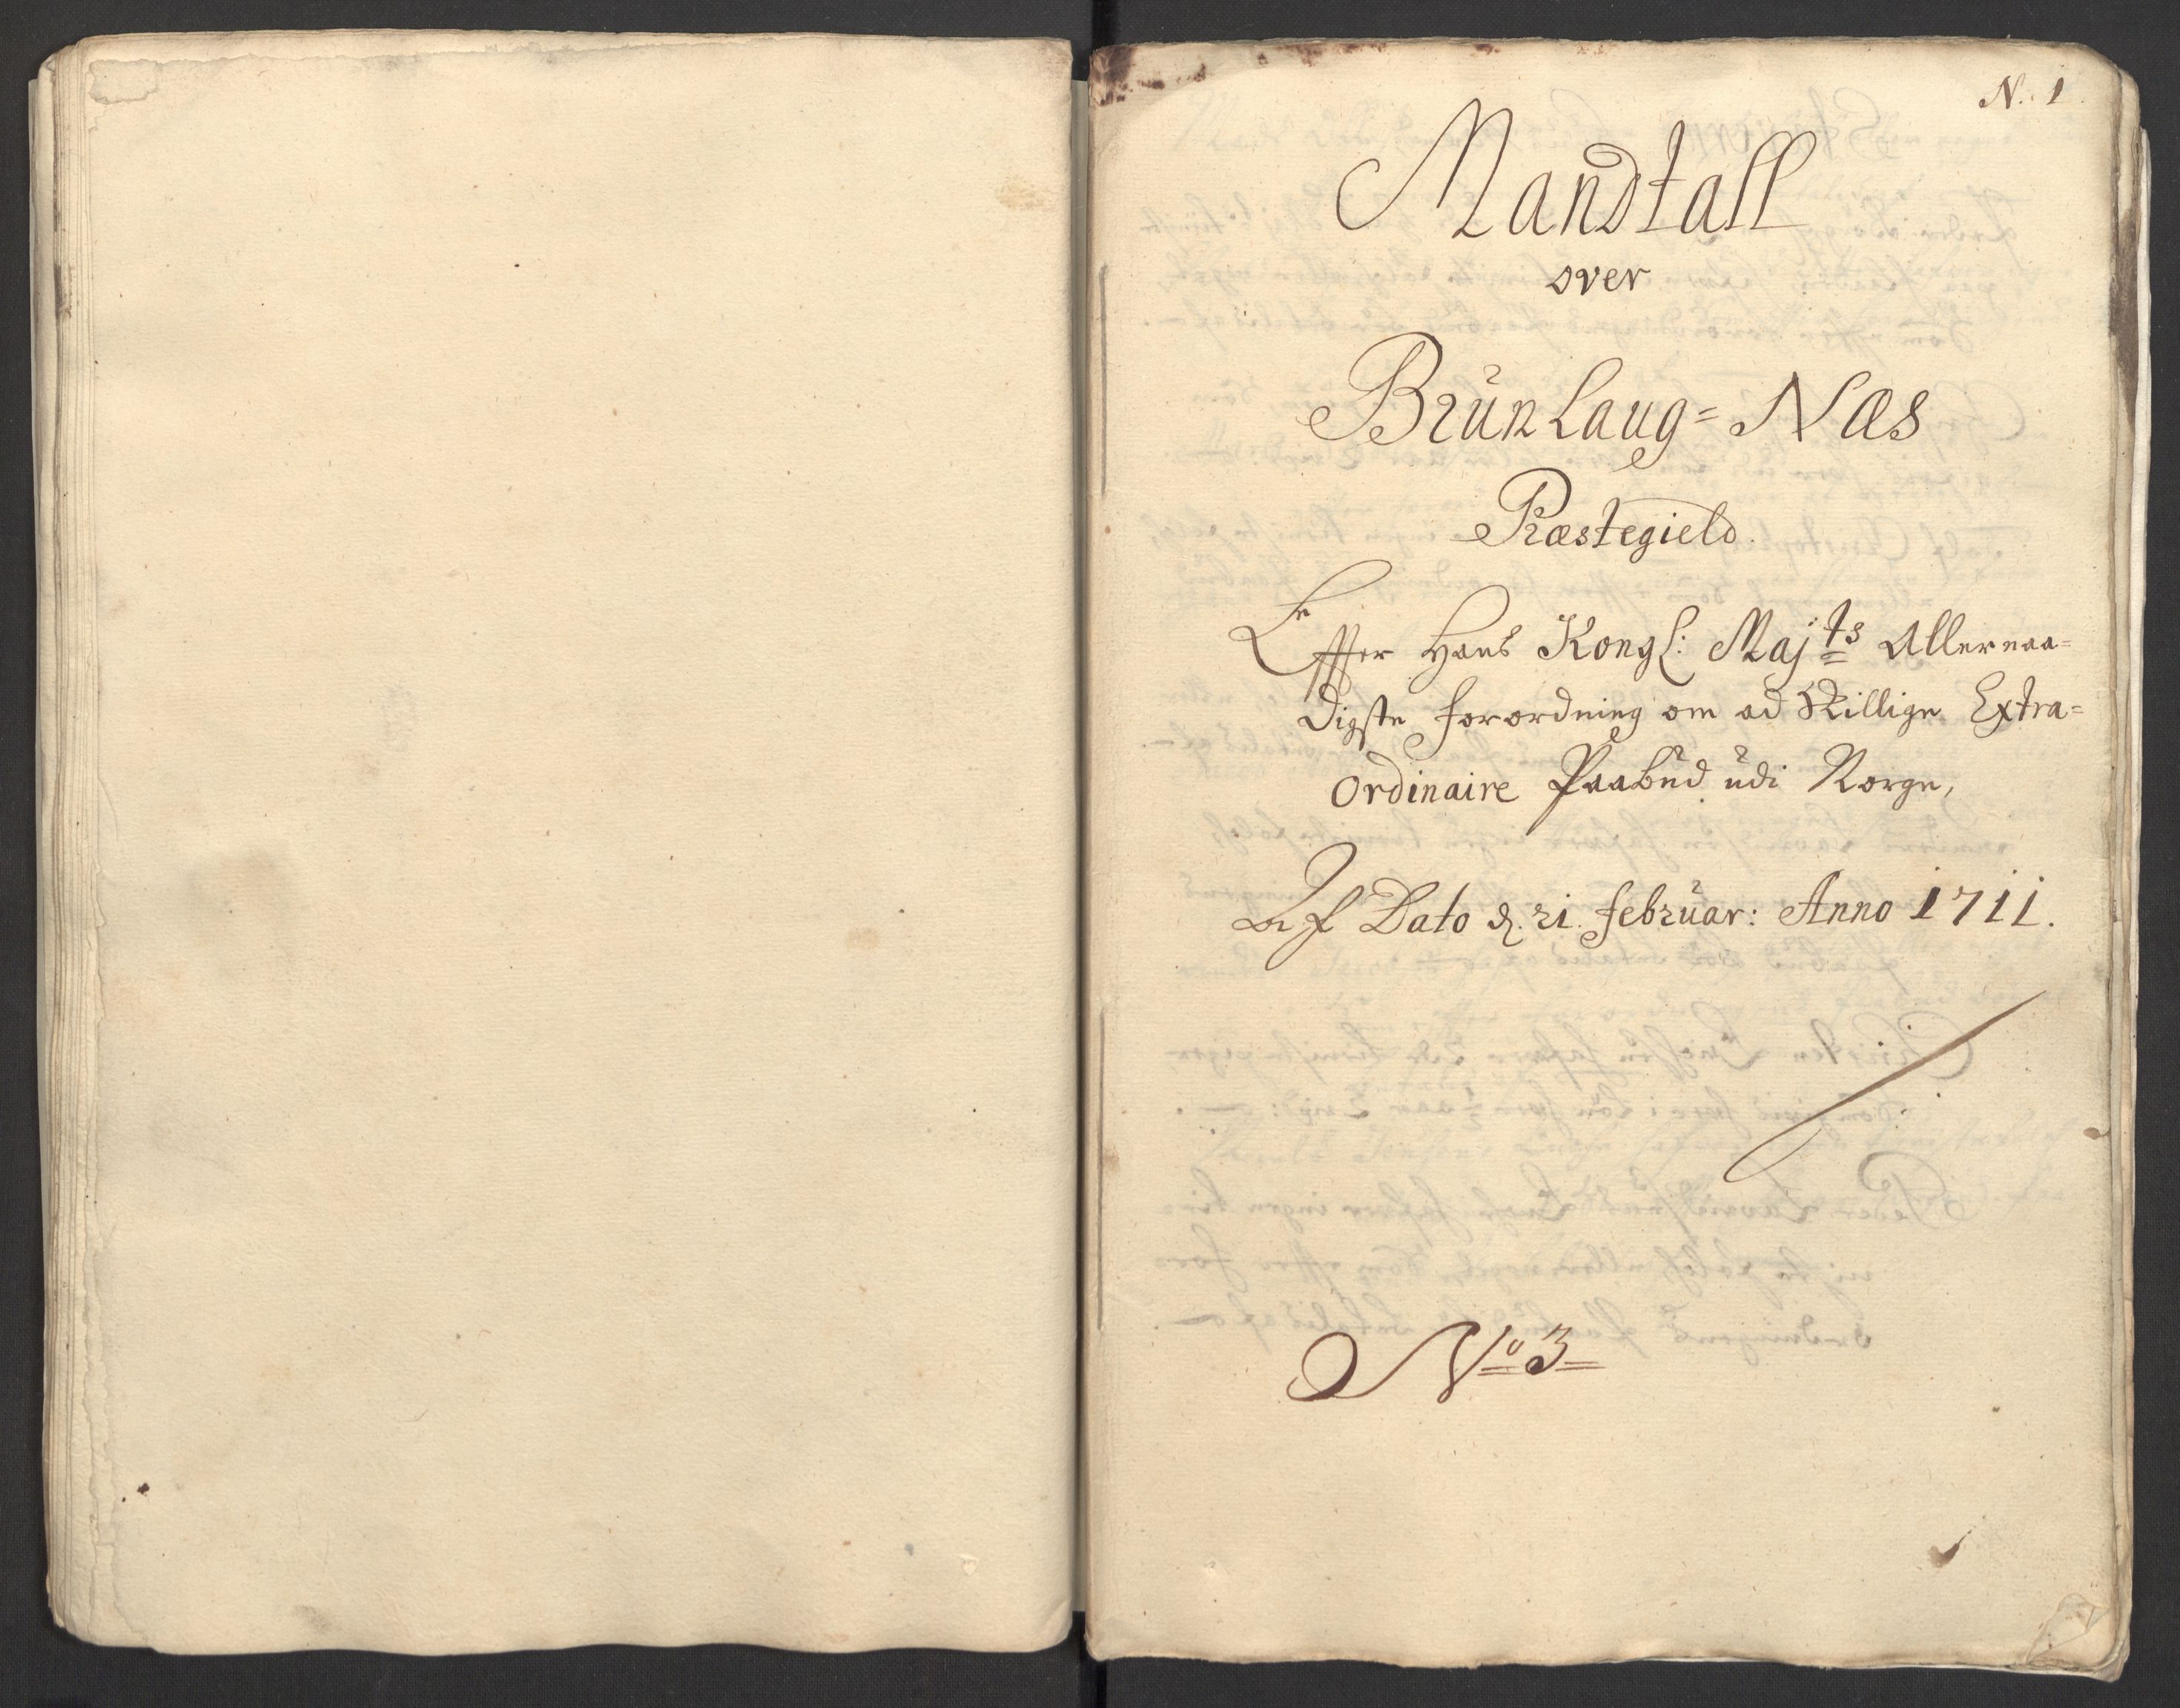 N. 1
Mandtall
over
Brünlaug= Næs
Præstegield.
Effter Hans Kongl: Majts Allernaa=
digste forordning om ad Skillige Extra=
Ordinaire Paabüd üdi Norge,
Af Dato d. 21. Febrüar: Anno 1711.
No 3